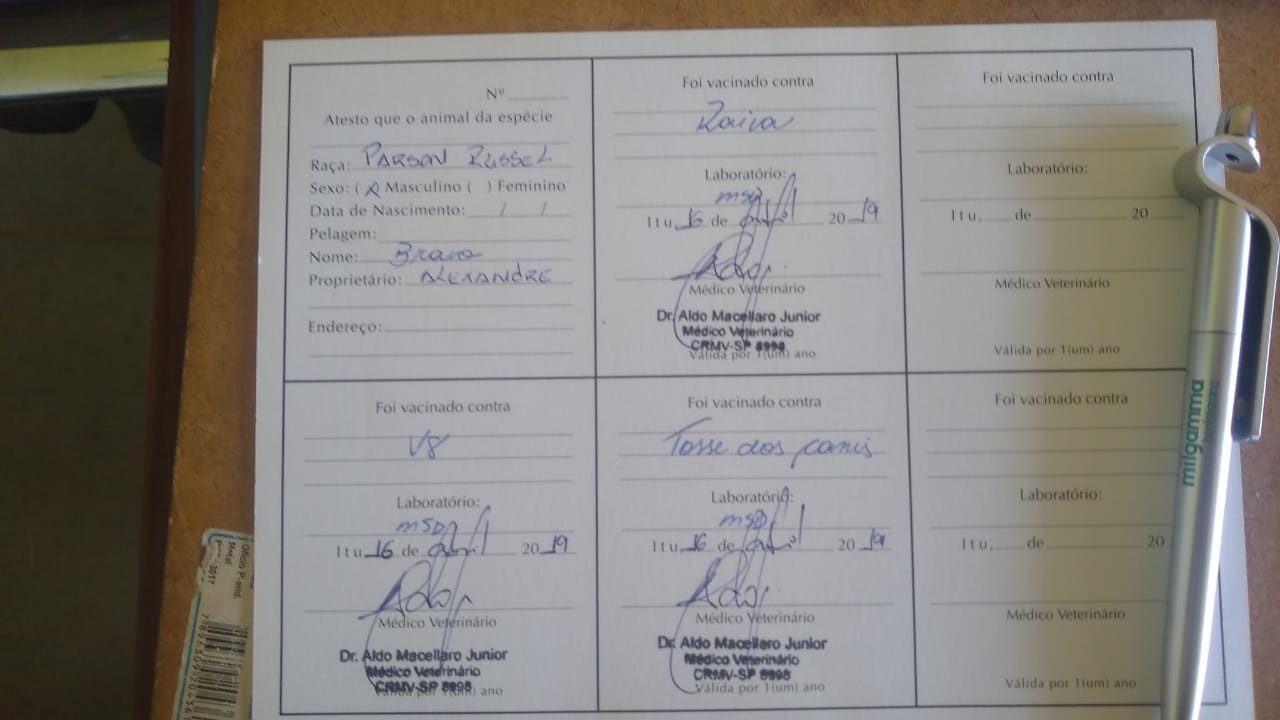 Nº
Atesto que o animal da espécie
Raça: PARSON RUSSEL
Sexo: (X) Masculino ( ) Feminino
Data de Nascimento: / /
Pelagem:
Nome: Bravo
Proprietário: ALEXANDRE
Endereço:
Foi vacinado contra
Raiva
Laboratório:
MSD
Itu, 16 de abril 20 19
Médico Veterinário
Dr. Aldo Macellaro Junior
Médico Veterinário
CRMV-SP
Válida por 1(um) ano
Foi vacinado contra
Laboratório:
Itu, de 20
Médico Veterinário
Válida por 1(um) ano
Foi vacinado contra
V8
Laboratório:
MSD
Itu, 16 de abril 20 19
Médico Veterinário
Dr. Aldo Macellaro Junior
Médico Veterinário
CRMV-SP
Válida por 1(um) ano
Foi vacinado contra
Tosse dos canis
Laboratório:
MSD
Itu, 16 de abril 20 19
Médico Veterinário
Dr. Aldo Macellaro Junior
Médico Veterinário
CRMV-SP
Válida por 1(um) ano
Foi vacinado contra
Laboratório:
Itu, de 20
Médico Veterinário
Válida por 1(um) ano
milgamma